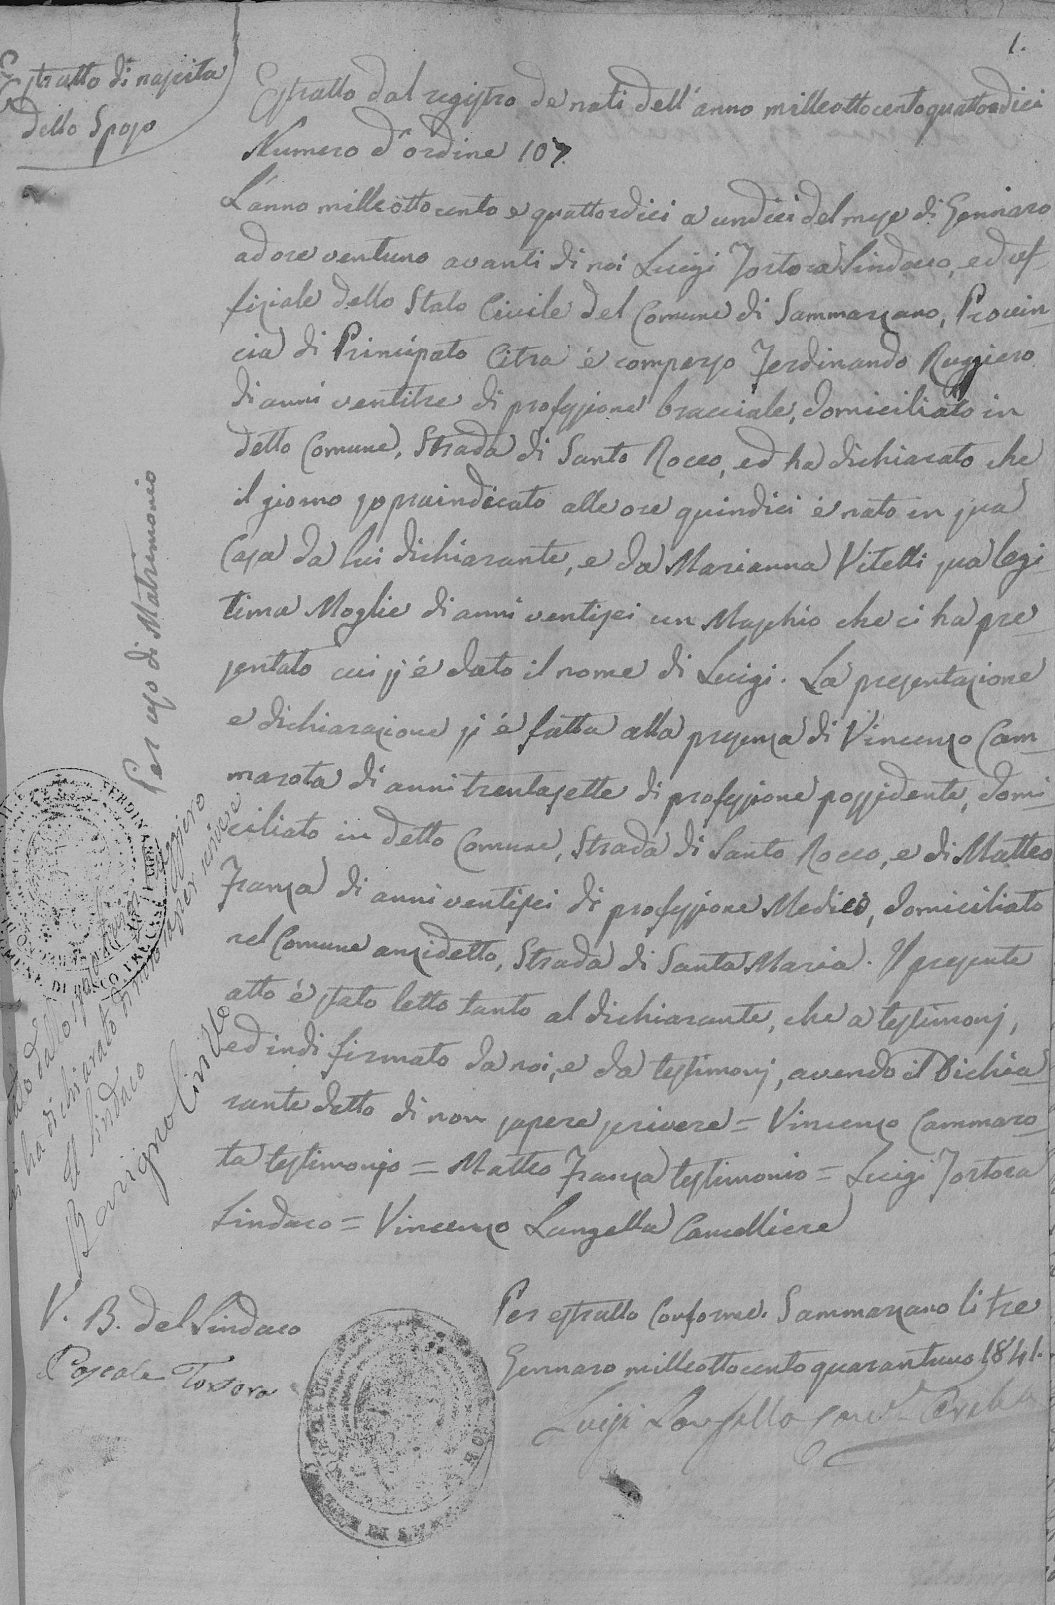 1.
Estratto di nascita
dello Sposo
Estratto dal registro de nati dell'anno milleottocentoquattordici
Numero d'ordine 107.
L'anno milleottocento e quattordici a undici del mese di Gennaro
ad ore ventuno avanti di noi Luigi Tortora Sindaco, ed uf-
fiziale dello Stato Civile del Comune di Sammarzano, Provin-
cia di Principato Citra é comperso Ferdinando Ruggiero
di anni ventitre di professione bracciale, domiciliato in
detto Comune, Strada di Santo Rocco, ed ha dichiarato che
il giorno sopraindicato alle ore quindici é nato in sua
Casa da lui dichiarante, e da Marianna Vitelli sua legi-
tima Moglie di anni ventisei un Maschio che ci ha pre-
sentato cui si é dato il nome di Luigi. La presentazione
e dichiarazione si é fatta alla presenza di Vincenzo Cam-
marota di anni trentasette di professione possidente, domi-
ciliato in detto Comune, Strada di Santo Rocco, e di Matteo
Franza di anni ventisei di professione Medico, domiciliato
nel Comune anzidetto, Strada di Santa Maria. Il presente
atto é stato letto tanto al dichiarante, che a testimonj,
ed indi firmato da noi, e da testimonj, avendo il Dichia-
rante detto di non sapere scrivere = Vincenzo Cammaro-
ta testimonio = Matteo Franza testimonio = Luigi Tortora
Sindaco = Vincenzo Langella Cancelliere
Per estratto Conforme. Sammarzano li tre
Gennaro milleottocentoquarantuno 1841.
Luigi Langella
V. B. del Sindaco
Pascale Tortora
Per uso di Matrimonio
dallo sposo
ha dichiarato di non saper scrivere
Il Sindaco